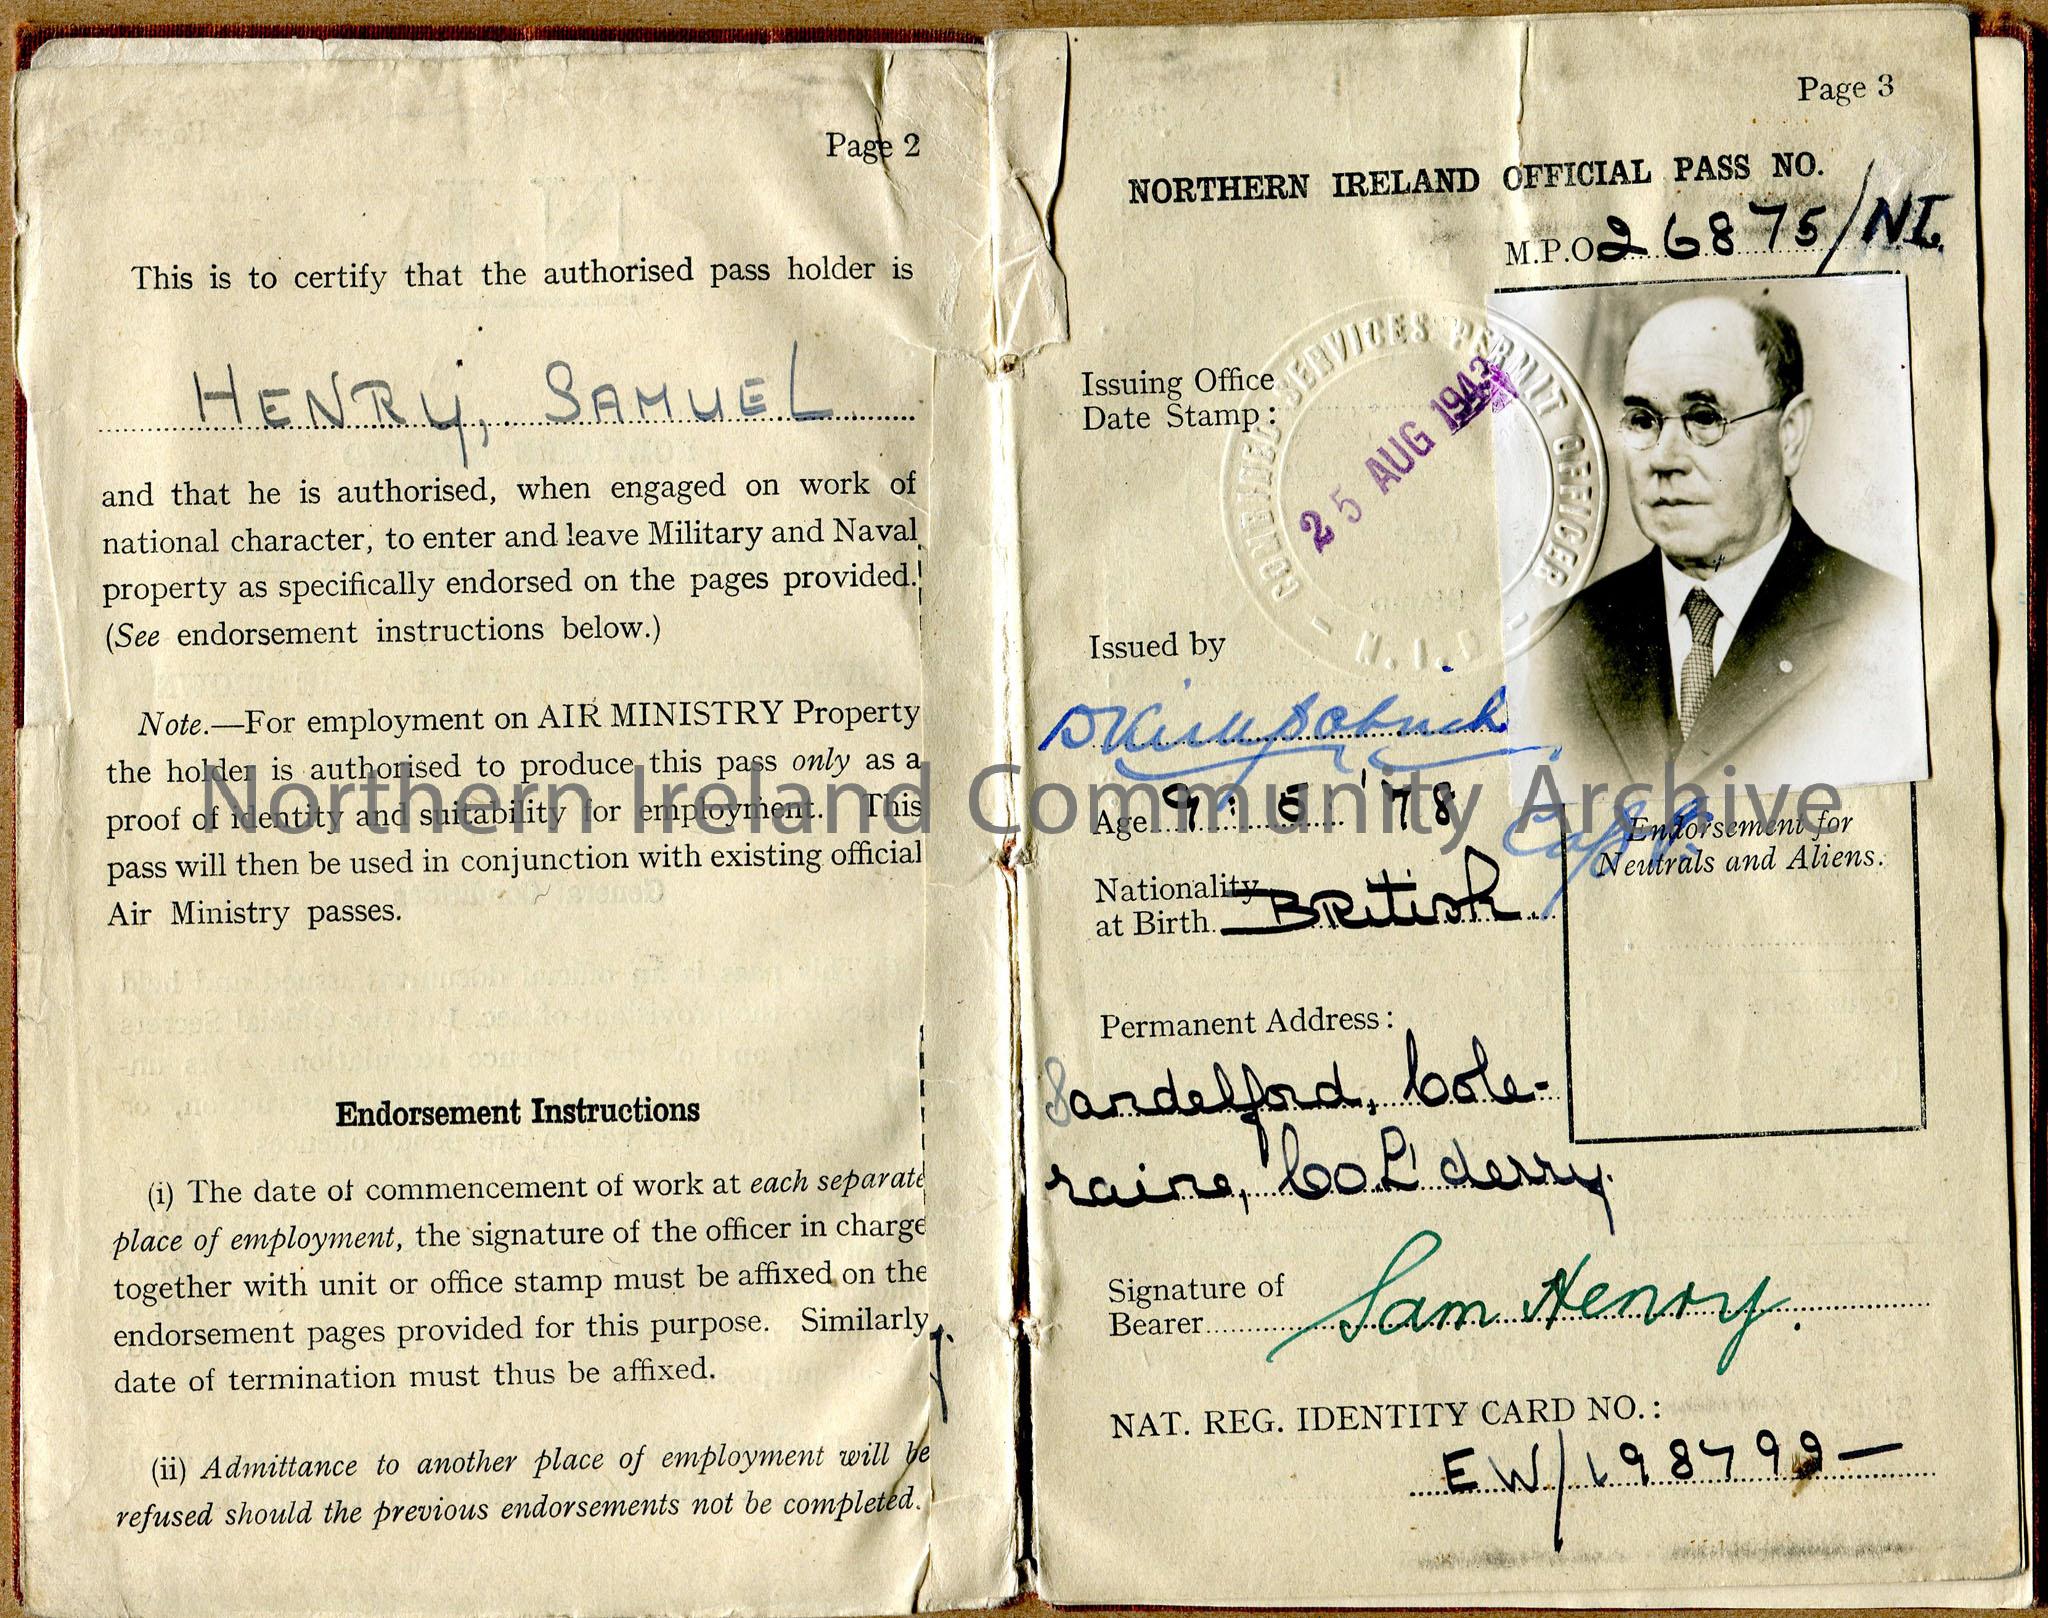 Page 2
This is to certify that the authorised pass holder is
HENRY, SAMUEL
and that he is authorised, when engaged on work of
national character, to enter and leave Military and Naval
property as specifically endorsed on the pages provided.
(See endorsement instructions below.)
Note.—For employment on AIR MINISTRY Property
the holder is authorised to produce this pass only as a
proof of identity and suitability for employment. This
pass will then be used in conjunction with existing official
Air Ministry passes.
Endorsement Instructions
(i) The date of commencement of work at each separate
place of employment, the signature of the officer in charge
together with unit or office stamp must be affixed on the
endorsement pages provided for this purpose. Similarly
date of termination must thus be affixed.
(ii) Admittance to another place of employment will be
refused should the previous endorsements not be completed.
Page 3
NORTHERN IRELAND OFFICIAL PASS NO.
M.P.O. 26875/NI.
COMBINED SERVICES PERMIT OFFICER
- N.I.D -
Issuing Office
Date Stamp:
25 AUG 1943
Issued by
Capt.
Age 9.5.'78
Endorsement for
Neutrals and Aliens.
Nationality
at Birth. British
Permanent Address:
Sandelford, Cole-
raine, Co L'derry.
Signature of
Bearer Sam Henry.
NAT. REG. IDENTITY CARD NO.:
EW/198799—
Northern Ireland Community Archive